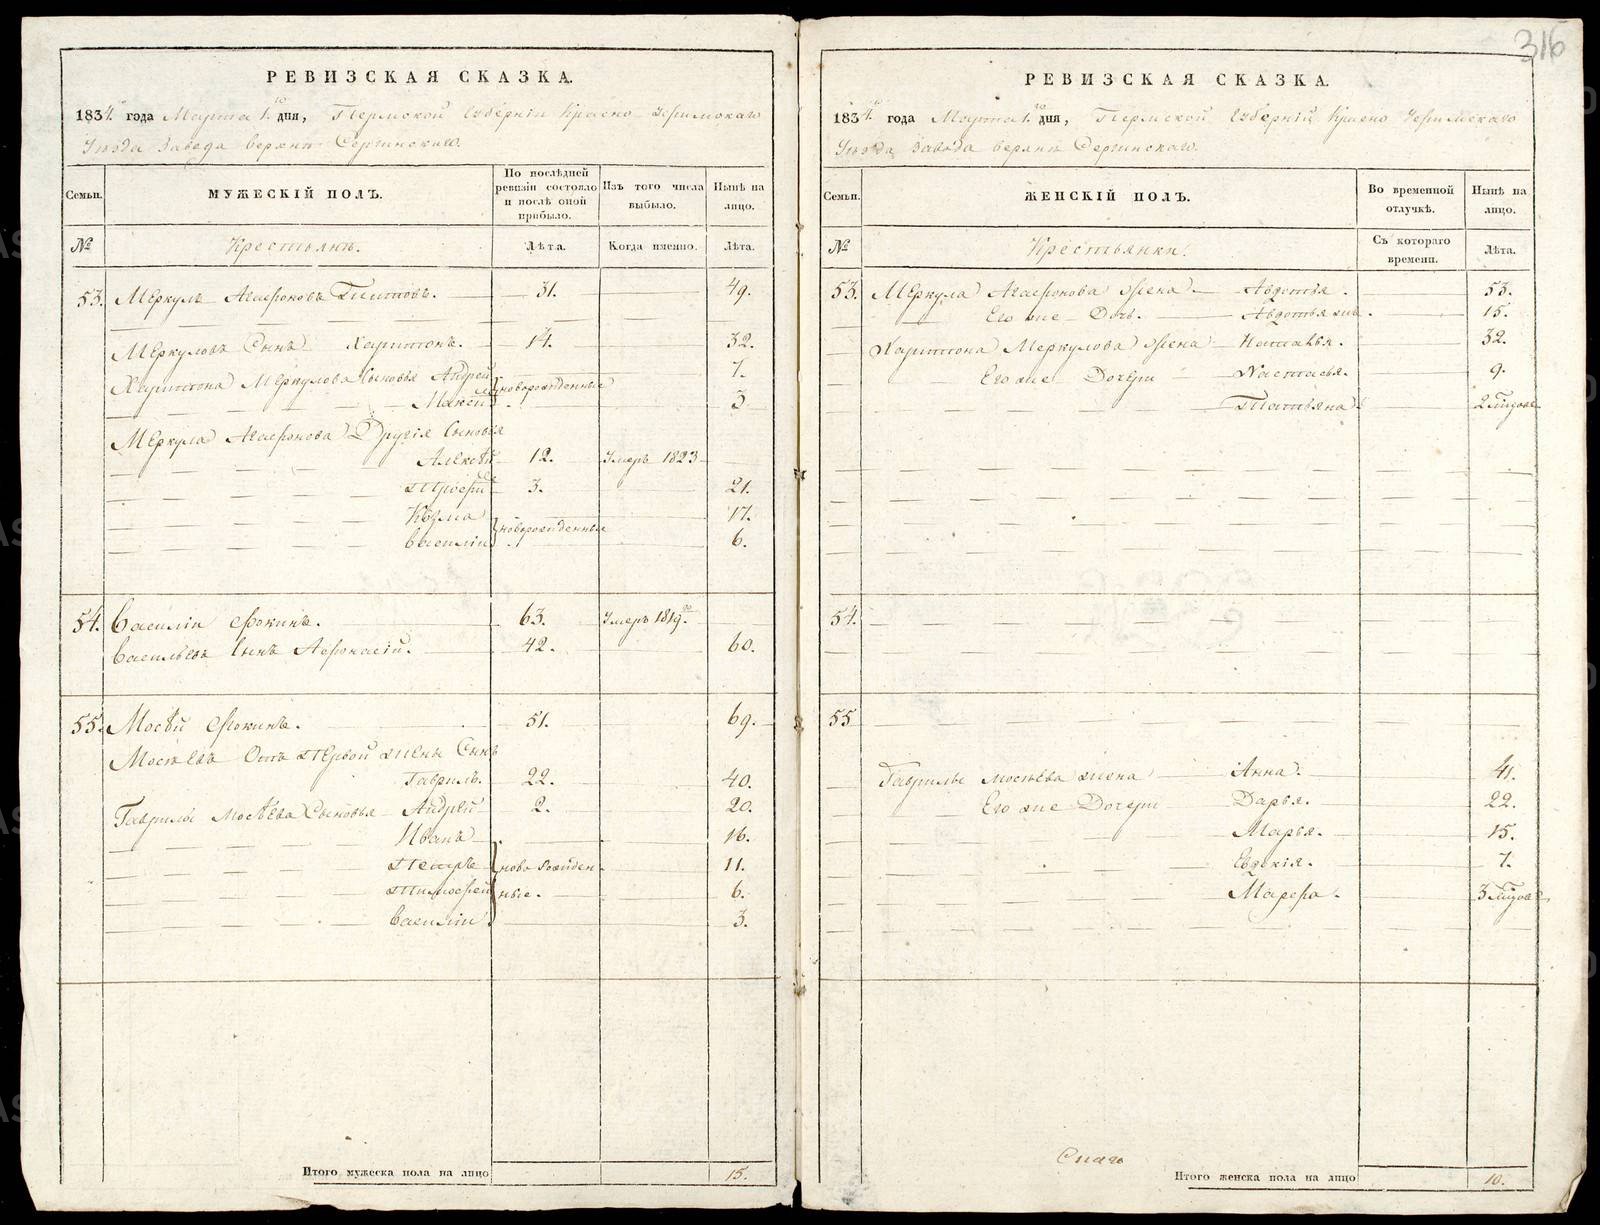 316
РЕВИЗСКАЯ СКАЗКА.
1834го года Марта 1го дня, Пермской Губернiи Красно Уфимскаго
Уѣзда Завода Верхнѣ Сергинскаго.
Семьи.
МУЖЕСКIЙ ПОЛЪ.
По послѣдней ревизiи состояло и послѣ оной прибыло.
Изъ того числа выбыло.
Нынѣ на лицо.
№
Крестьяне.
Лѣта.
Когда именно.
Лѣта.
53. Меркулъ Агафоновъ Титовъ. 31. 49.
Меркуловъ Сынъ Харитонъ. 14. 32.
Харитона Меркулова Сыновья Андрей новорожденные 7.
Максимъ 3
Меркула Агафонова Другiя Сыновья
Алексѣй 12. Умеръ 1823
3. 21.
Козма новорожденные 17.
Василiй 6.
54. Василiй Фокинъ. 63. Умеръ 1819го.
Васильевъ Сынъ Афонасiй. 42. 60.
55. Мосѣй Фокинъ. 51. 69.
Мосѣевъ Отъ Первой жены Сынъ
Гаврилъ. 22. 40.
Гаврилы Мосѣева Сыновья Андрей 2. 20.
Иванъ 16.
Петръ ново рожден- 11.
Тимофей ные. 6.
Василiй 3.
Итого мужеска пола на лицо 15.
РЕВИЗСКАЯ СКАЗКА.
1834го года Марта 1го дня, Пермской Губернiй Красно Уфимскаго
Уѣзда Завода Верхнѣ Сергинскаго.
Семьи.
ЖЕНСКIЙ ПОЛЪ.
Во временной отлучкѣ.
Нынѣ на лицо.
№
Крестьянки.
Съ котораго времени.
Лѣта.
53. Меркула Агафонова Жена Авдотья. 53.
Его же Дочь. Авдотья же. 15.
Харитона Меркулова Жена Наталья. 32.
Его же Дочери Настасья. 9.
Татьяна 2 Годовъ
54.
55
Гаврилы Мосѣева жена Анна. 41.
Его же Дочери Дарья. 22.
Марья. 15.
Евдокiя. 7.
Марфа. 3 Годовъ
Итого женска пола на лицо 10.